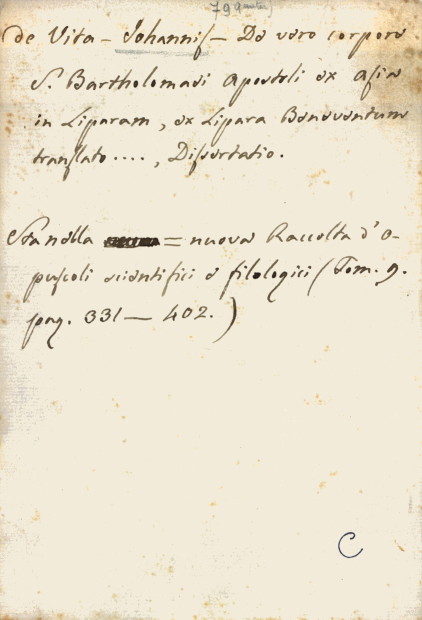 de Vita - Johannis - De vero corpore
S. Bartholomaei Apostoli ex Asia
in Liparam, ex Lipara Beneventum
translato...., Dissertatio.
Sta nella = nuova Raccolta d'o-
puscoli scientifici e filologici (Tom. 9.
pag. 331 — 402.)
C